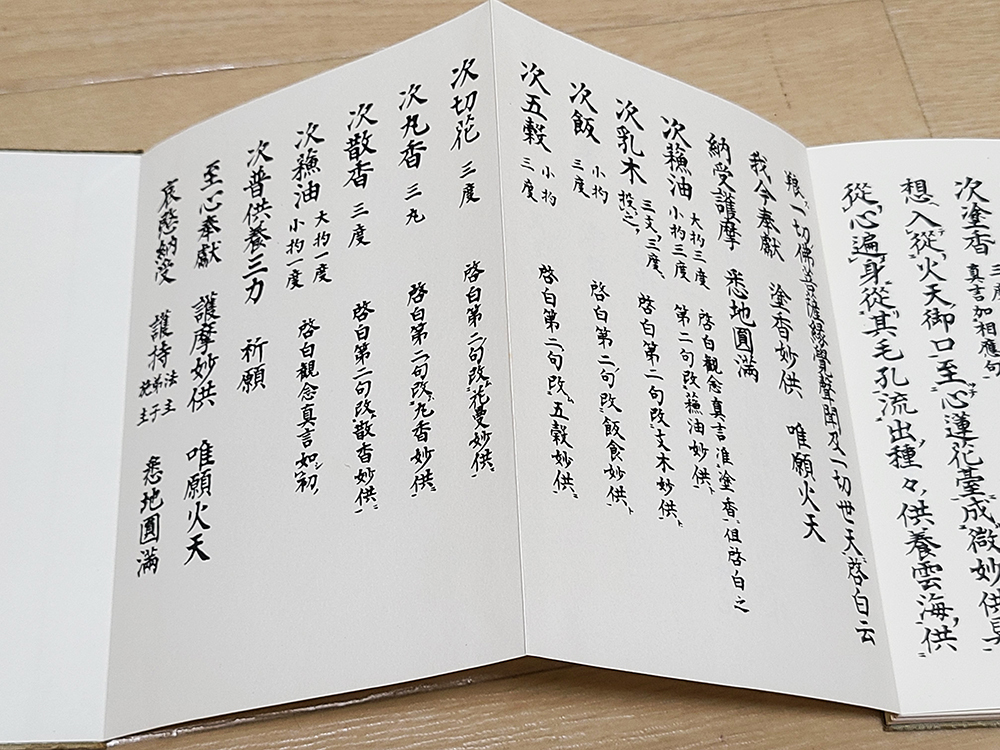 次塗香 三度 真言加相應句
想、入從火天御口至心蓮花臺成微妙供具
從心遍身從其毛孔流出種々供養雲海供
養一切佛菩薩縁覺聲聞及一切世天啓白云
我今奉獻 塗香妙供 唯願火天
納受護摩 悉地圓滿
次蘓油 大杓三度 小杓三度 啓白觀念真言准塗香、但啓白之第二句改蘓油妙供
次乳木 三支、三度、投之 啓白第二句改支木妙供
次飯 小杓 三度 啓白第二句改飯食妙供
次五穀 小杓 三度 啓白第二句改五穀妙供
次切花 三度 啓白第二句改花曼妙供
次丸香 三丸 啓白第二句改丸香妙供
次散香 三度 啓白第二句改散香妙供
次蘓油 大杓一度 小杓一度 啓白觀念真言如初
次普供養三力 祈願
至心奉獻 護摩妙供 唯願火天
哀愍納受 護持 法主 弟子 悉地圓滿